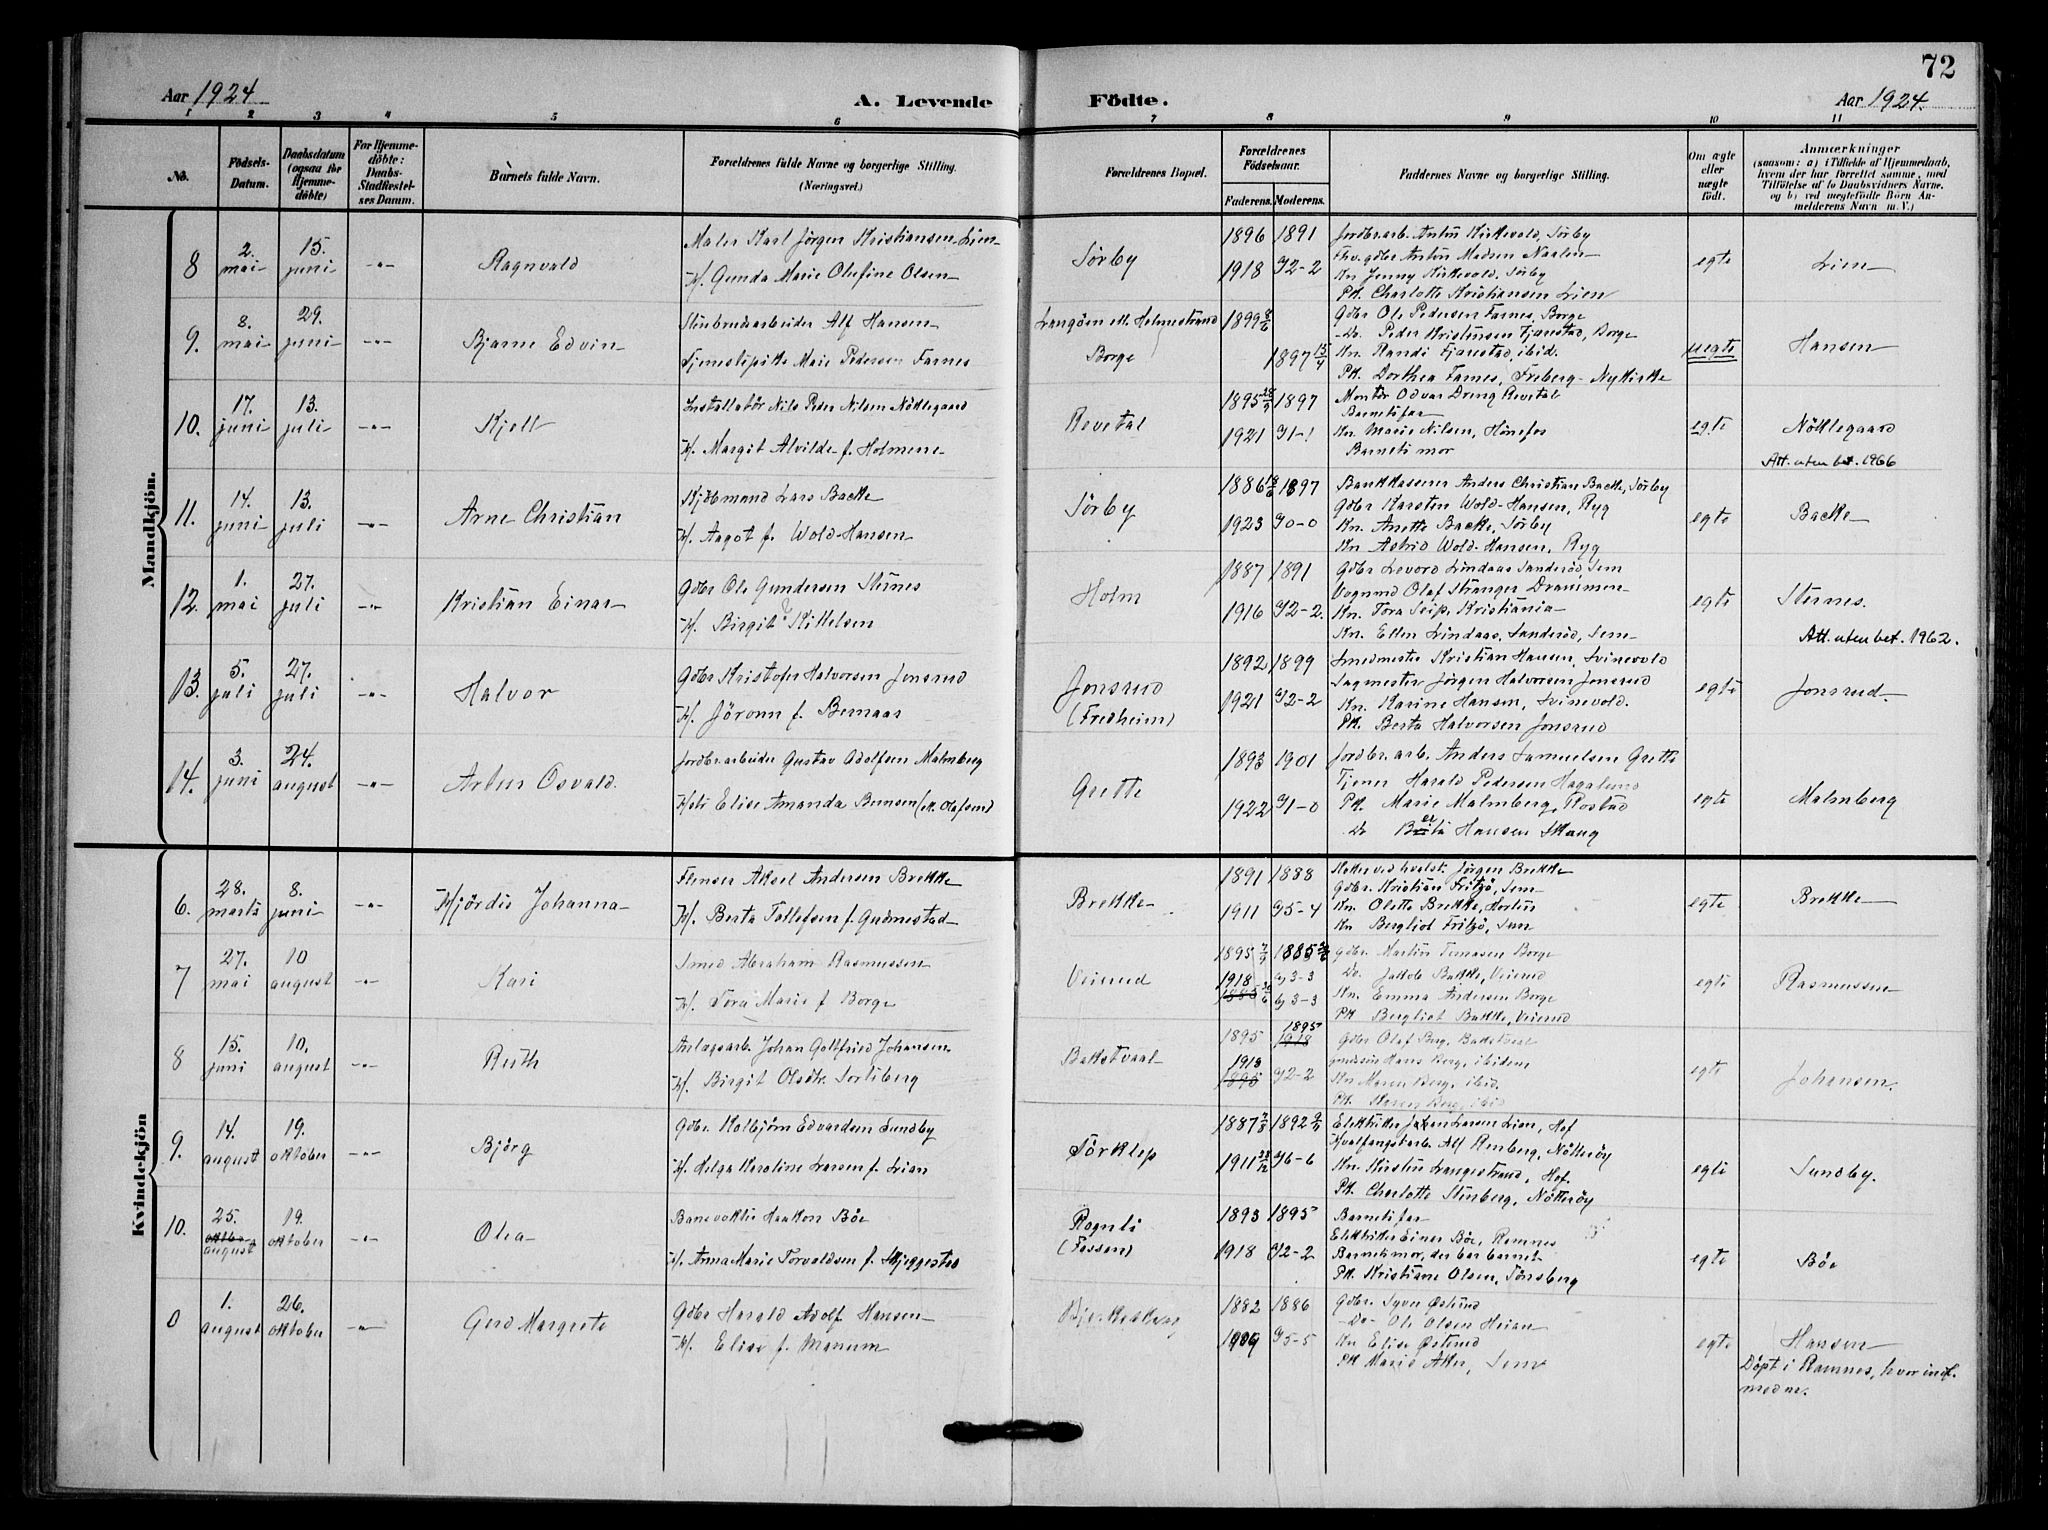 72
Aar 1924
A. Levende
Födte.
Aar 1924.
1 2 3 4 5 6 7 8 9 10 11
No.
Födsels-
Datum.
Daabsdatum
(ogsaa for
Hjemme-
döbte)
For Hjemme-
döbte:
Daabs-
Stadfæstel-
ses Datum.
Barnets fulde Navn.
Forældrenes fulde Navne og borgerlige Stilling.
(Næringsvei.)
Forældrenes Bopæl.
Forældrenes
Födselsaar.
Faderens. Moderens.
Faddernes Navne og borgerlige Stilling.
Om ægte
eller
uægte
födt.
Anmærkninger
(saasom: a) i Tilfælde af Hjemmedaab,
hvem der har forrettet samme, med
Tilföielse af to Daabsvidners Navne,
og b) ved uegtefödte Börn An-
melderens Navn m. V.)
Mandkjön.
8
2. mai
15. juni
-"-
Ragnvald
Maler Karl Jörgen Kristiansen Lien
H. Gunda Marie Olefine Olsen
Sörby
1896 1891
1918 G2-2
Jordbr.arb. Anton Kirkevold, Sörby
Fhv. gdbr Anton Madsen Naalen
Kn Jenny Kirkevold, Sörby
Pk. Charlotte Kristiansen Lien
egte
Lien
9.
8. mai
29. juni
-"-
Bjarne Edvin
Stenbrudarbeider Alf Hansen
Tjenestepike Marie Pedersen Farnes
Langöen Holmestrand
Borge
1899
1897 15/4
Gdbr Ole Pedersen Farnes, Borge
Do. Peder Kristensen Fjanestad, Borge
Kn. Randi Fjanestad, ibid.
Pk. Dorthea Farnes, Freberg - Nykirke
uegte
Hansen
10.
17. juni
13. juli
-"-
Kjell
Installatör Nils Peder Nilsen Nöklegaard
H. Margit Alvilde f. Holmene
Revetal
1895 1897
1921 G1-1
Montör Odvar Dreng Revetal
Barnets far
Kn. Marie Nilsen, Hönefos
Barnets mor
egte
Nöklegaard
Att. uten bet. 1966
11.
14. juni
13. juli
-"-
Arne Christian
Kjöbmand Lars Backe
H. Aagot f. Wold-Hansen
Sörby
1886 1897
1923 G0-0
Bankkasserer Anders Christian Backe, Sörby
Gdbr Karsten Wold-Hansen, Ryg
Kn. Anette Backe, Sörby
Kn Astrid Wold-Hansen, Ryg
egte
Backe
12.
1. mai
27. juli
-"-
Kristian Einar
Gdbr Ole Gundersen Sternes
H. Birgit Kittelsen
Holm
1887 1891
1916 G2-2.
Gdbr Levord Lindaas Sanderöd Sem
Vognmd Olaf Stanger Drammen
Kn. Tora Seip, Kristiania
Kn. Ellen Lindaas, Sanderöd, Sem
egte
Sternes.
Att. uten bet. 1962.
13.
5. juli
27. juli
-"-
Halvor
Gdbr Kristofer Halvorsen Jonsrud
H. Jöronn f. Bernaas
Jonsrud
(Fredheim)
1892 1899
1921 G2-2
Smedmester Kristian Hansen, Svinevold
Sagmester Jörgen Halvorsen Jonsrud
Kn. Karine Hansen, Svinevold.
Pk. Berta Halvorsen Jonsrud
egte
Jonsrud
14.
3. juni
24. august
-"-
Artur Osvald.
Jordbr.arbeider Gustav Adolfsen Malmberg
Elise Amanda Bernsen (Olafsen)
Grette
1893 1901
1922 G1-0
Jordbr. arb. Anders Samuelsen Grette
Tjener Harald Pedersen Hagalund
Pk. Marie Malmberg, Rostad
Do Hansen Skaug
egte
Malmberg
Kvindekjön
6.
28. marts
8. juni
-"-
Hjördis Johanna
Flenser Aksel Andersen Brekke
H. Berta Tollefsen f. Gudmestad
Brekke
1891 1888
1911 G5-4
Kokk ved hvalst. Jörgen Brekke
Gdbr. Kristian Fritzö, Sem
Kn. Olette Brekke, Horten
Kn Bergliot Fritzö, Sem
egte
Brekke
7
27. mai
10 august
-"-
Kari
Smed Abraham Rasmussen
H. Tora Marie f Borge
Veierud
1895 1885
1918 G3-3
1885 G3-3
Gdbr. Martin Tomasen Borge
Do. Jakob Bakke, Veierud
Kn. Emma Andersen Borge
Pk Bergliot Bakke, Veierud
egte
Rasmussen
8
15. juni
10. august
-"-
Ruth
Anlægsarb. Johan Gottfried Johansen
H. Birgit Olsdtr. Torliberg
Bakstvaal
1895 1895 1918
1918 1895 G2-2
Gdbr Olaf Berg, Bakstvaal
Hans Berg, ibidem
Kn Maren Berg, ibid.
Pk. Karen Berg, ibid
egte
Johansen.
9.
14. august
19. oktober
-"-
Björg
Gdbr. Kolbjörn Edvardsen Sundby
H. Helga Karoline Larsen f. Lian
Törklep
1887 1892
1911 G6-6
Elektriker Johan Larsen Lien, Hof
Hvalfangstarb. Alf Renberg, Nötteröy
Kn. Kirsten Langestrand, Hof.
Pk. Charlotte Stenberg, Nötteröy
egte
Sundby.
10.
25. oktbr. august
19. oktober
-"-
Olea
Banevokter Haakon Böe
H. Anna Marie Torvaldsen f. Skjeggestad
Rognli
(Fossen)
1893 1895
1918 G2-2
Barnets far
Elektriker Einer Böe, Ramnes
Barnets mor, der bar barnet
Pk. Kristiane Olsen, Tönsberg
egte
Böe
0
1. august
26. oktober
-"-
Gerd Margrete
Gdbr Harald Adolf Hansen
H. Elise f. Manum
1882 1886
1909 G5-5
Gdbr. Syver Östend
-Do- Ole Olsen Heian
Kn Elise Östend
Pk Marie Aker, Sem
egte
Hansen
Döpt i Ramnes, hvor indf.
med ne.